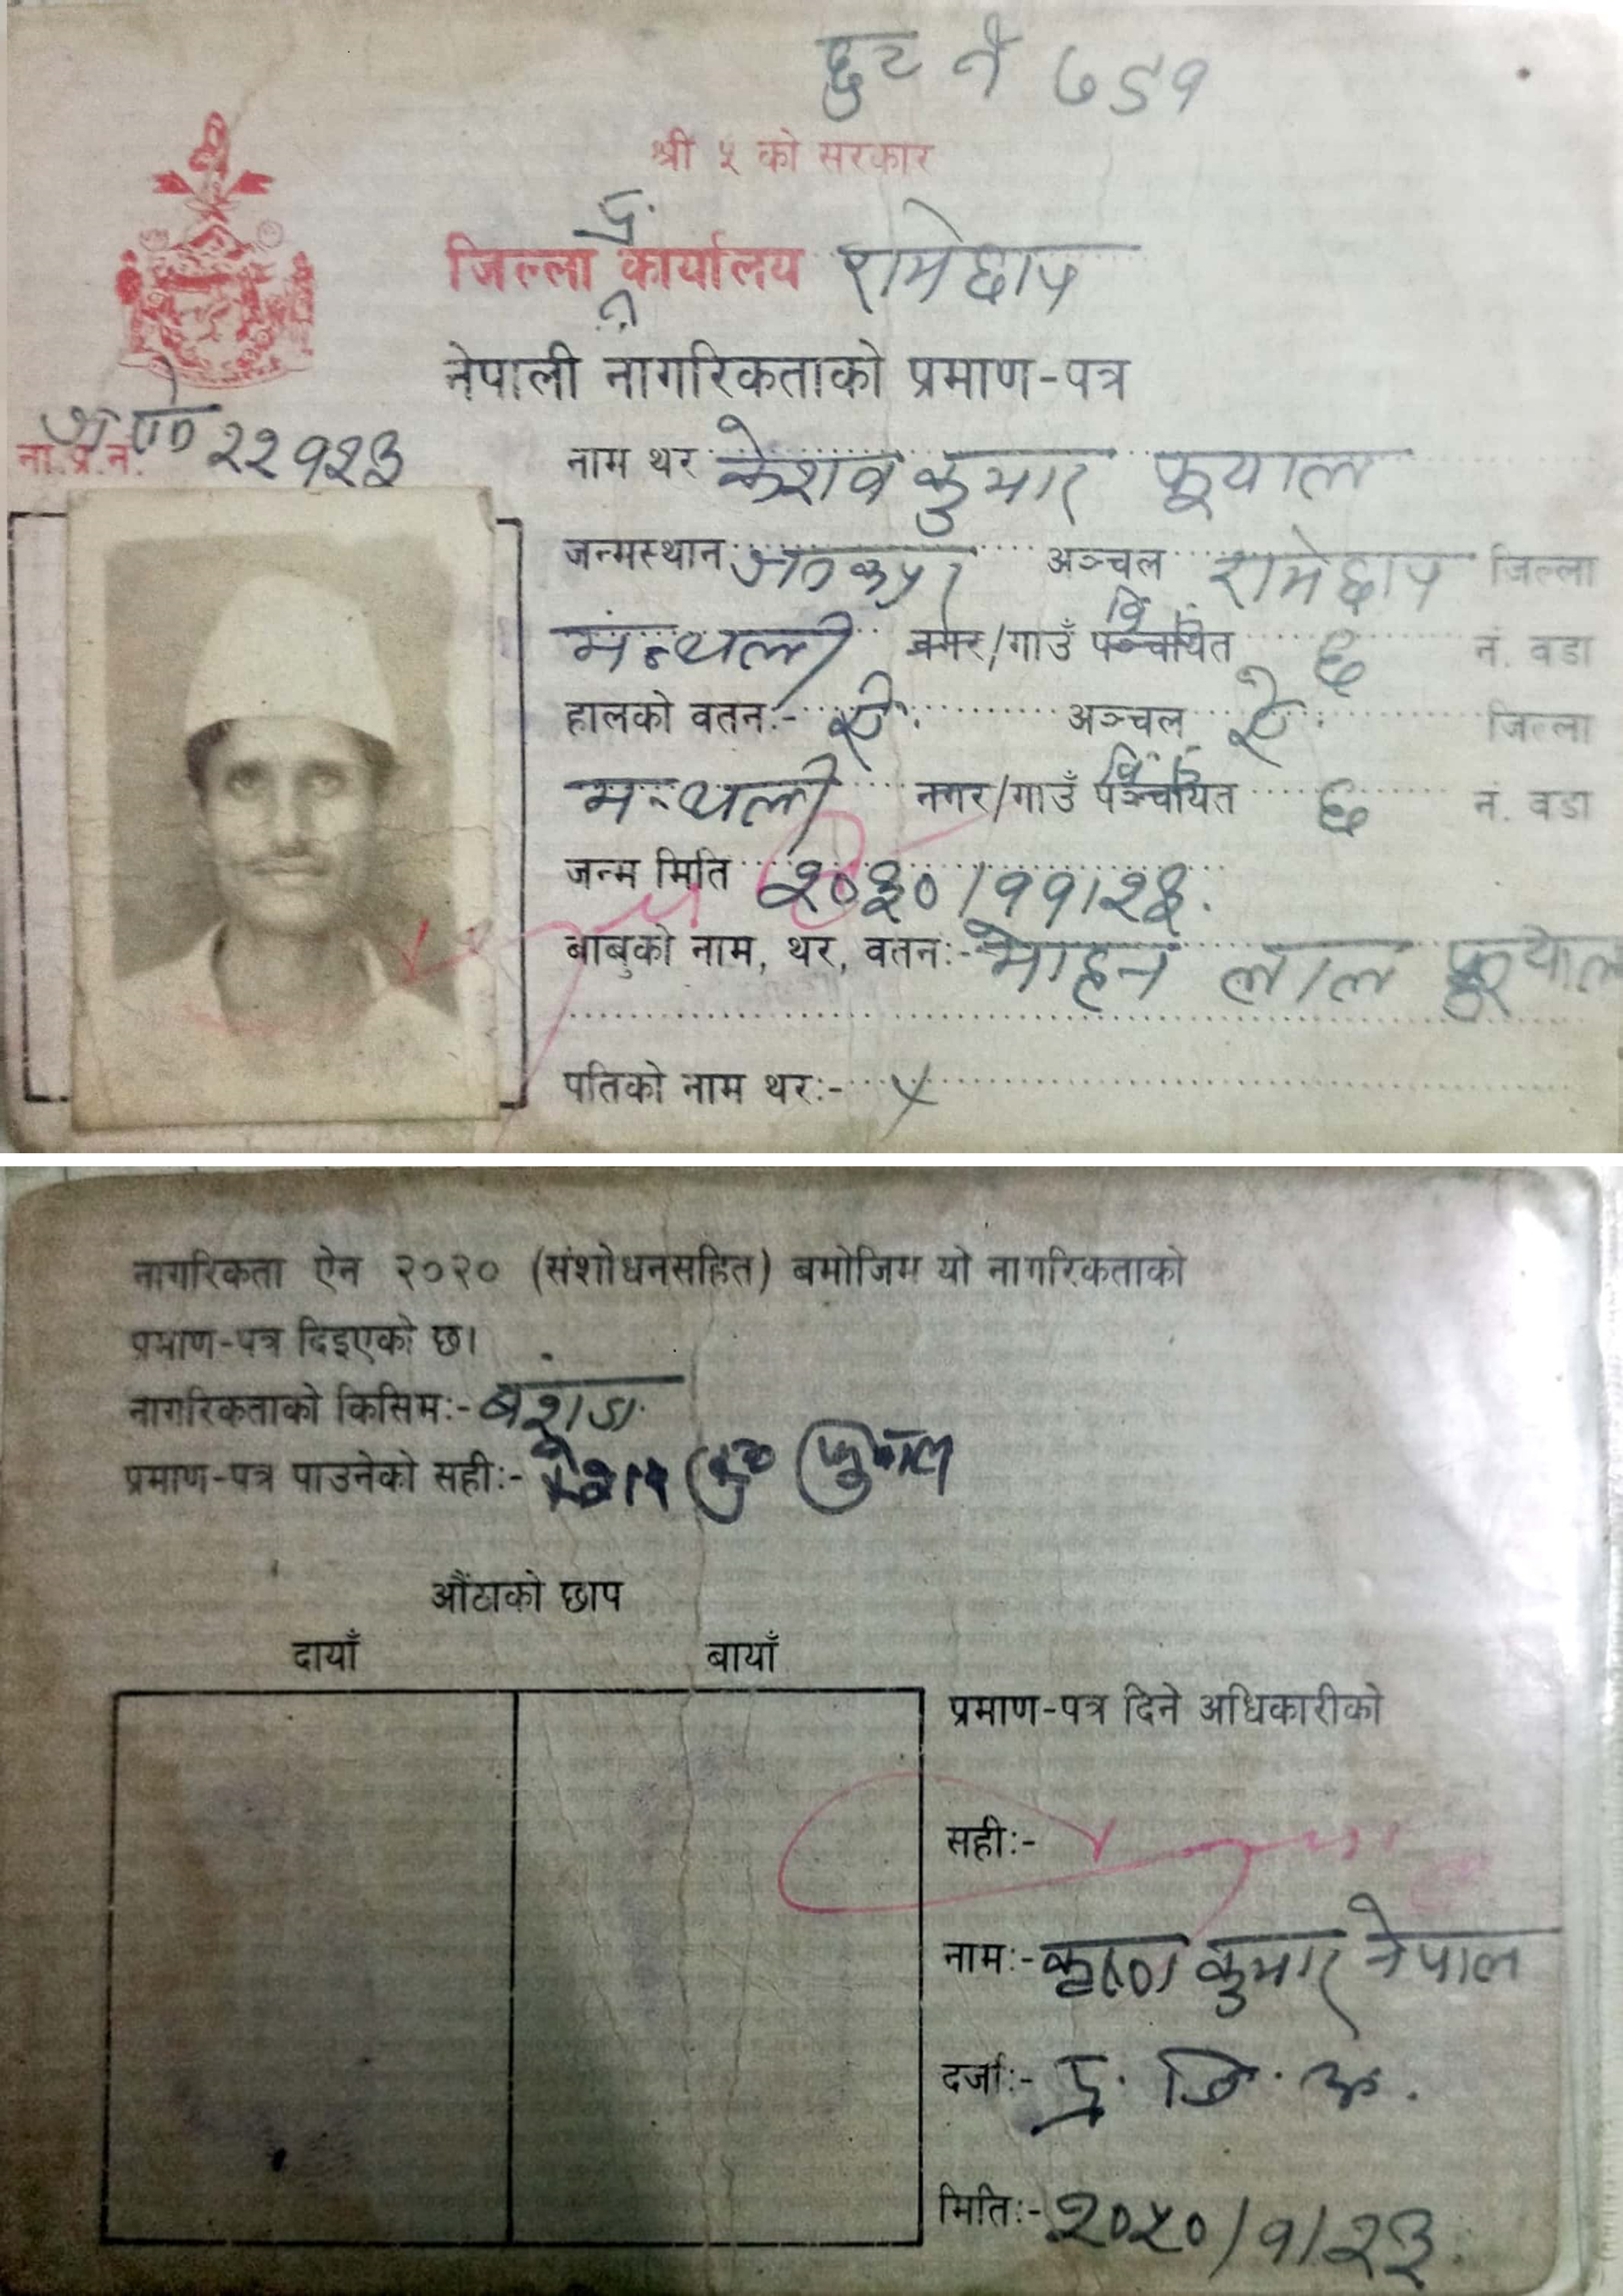 छुट नं ७५१
श्री ५ को सरकार
जिल्ला प्र. कार्यालय रामेछाप
नेपाली नागरिकताको प्रमाण-पत्र
ना.प्र.नं. २२१२३
नाम थर केशव कुमार फूयाल
जन्मस्थान जनकपुर अञ्चल रामेछाप जिल्ला
मन्थली नगर/गाउँ पञ्चायत वि. ६ नं. वडा
हालको वतन:- ऐ. अञ्चल ऐ. जिल्ला
मन्थली नगर/गाउँ पञ्चायत वि. ६ नं. वडा
जन्म मिति २०३०/११/२३.
बाबुको नाम, थर, वतन:- मोहन लाल फूयाल
पतिको नाम थर:- x
नागरिकता ऐन २०२० (संशोधनसहित) बमोजिम यो नागरिकताको
प्रमाण-पत्र दिइएको छ।
नागरिकताको किसिम:- बंशज
प्रमाण-पत्र पाउनेको सही:- केशव कु० फुयाल
औंठाको छाप
दायाँ बायाँ
प्रमाण-पत्र दिने अधिकारीको
सही:-
नाम:- कृष्ण कुमार नेपाल
दर्जा:- प्र. जि. अ.
मिति:- २०५०/१/२३.